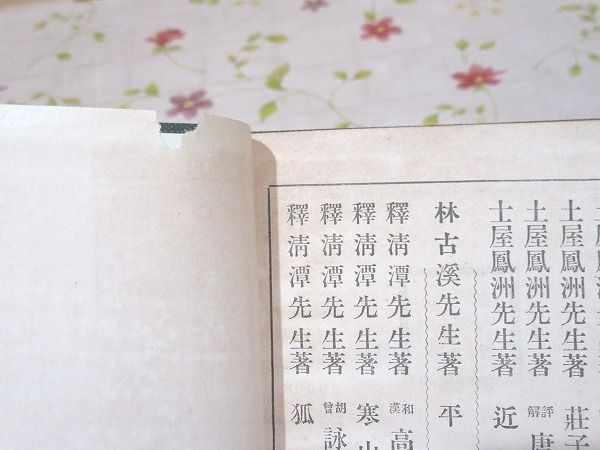 土屋鳳洲先生著
土屋鳳洲先生著 莊子
土屋鳳洲先生著 評解 唐
土屋鳳洲先生著 近
林古溪先生著 平
釋淸潭先生著 和漢 高
釋淸潭先生著 寒山
釋淸潭先生著 胡曾 詠
釋淸潭先生著 狐